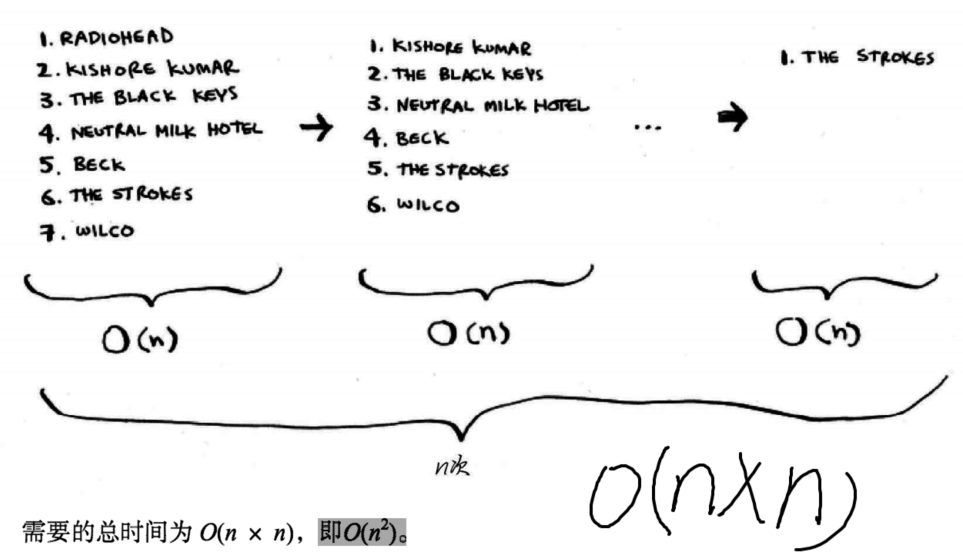 1. RADIOHEAD
2. KISHORE KUMAR
3. THE BLACK KEYS
4. NEUTRAL MILK HOTEL
5. BECK
6. THE STROKES
7. WILCO
→
1. KISHORE KUMAR
2. THE BLACK KEYS
3. NEUTRAL MILK HOTEL
4. BECK
5. THE STROKES
6. WILCO
...
→
1. THE STROKES
O(n)
O(n)
O(n)
n次
O(n×n)
需要的总时间为 O(n × n)，即O(n²)。